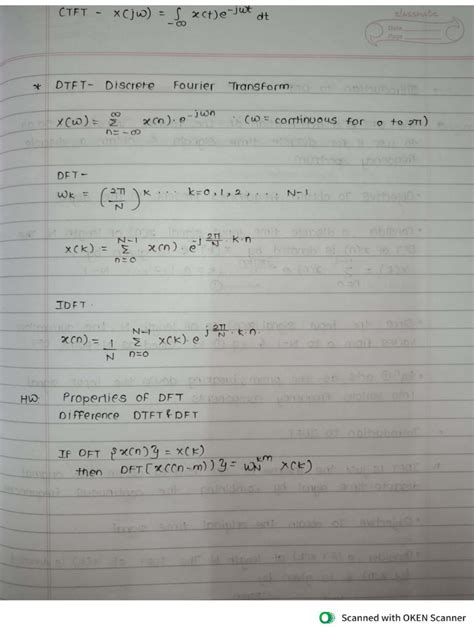 CTFT - x(jω) = ∫ x(t)e^-jωt dt
∞
-∞
classmate
Date
Page
* DTFT- Discrete Fourier Transform
X(ω) = ∞ Σ n=-∞ x(n)·e^-jωn ∵(ω= continuous for 0 to 2π)
DFT-
ωk = (2π/N) k ... k=0,1,2,... N-1
x(k) = N-1 Σ n=0 x(n) e^-j 2π/N · k·n
IDFT·
x(n) = 1/N N-1 Σ n=0 x(k)· e^j 2π/N · k·n.
HW. Properties of DFT
Difference DTFT & DFT
If DFT {x(n)} = x(k)
then DFT[x((n-m))} = WN^km X(k)
Scanned with OKEN Scanner